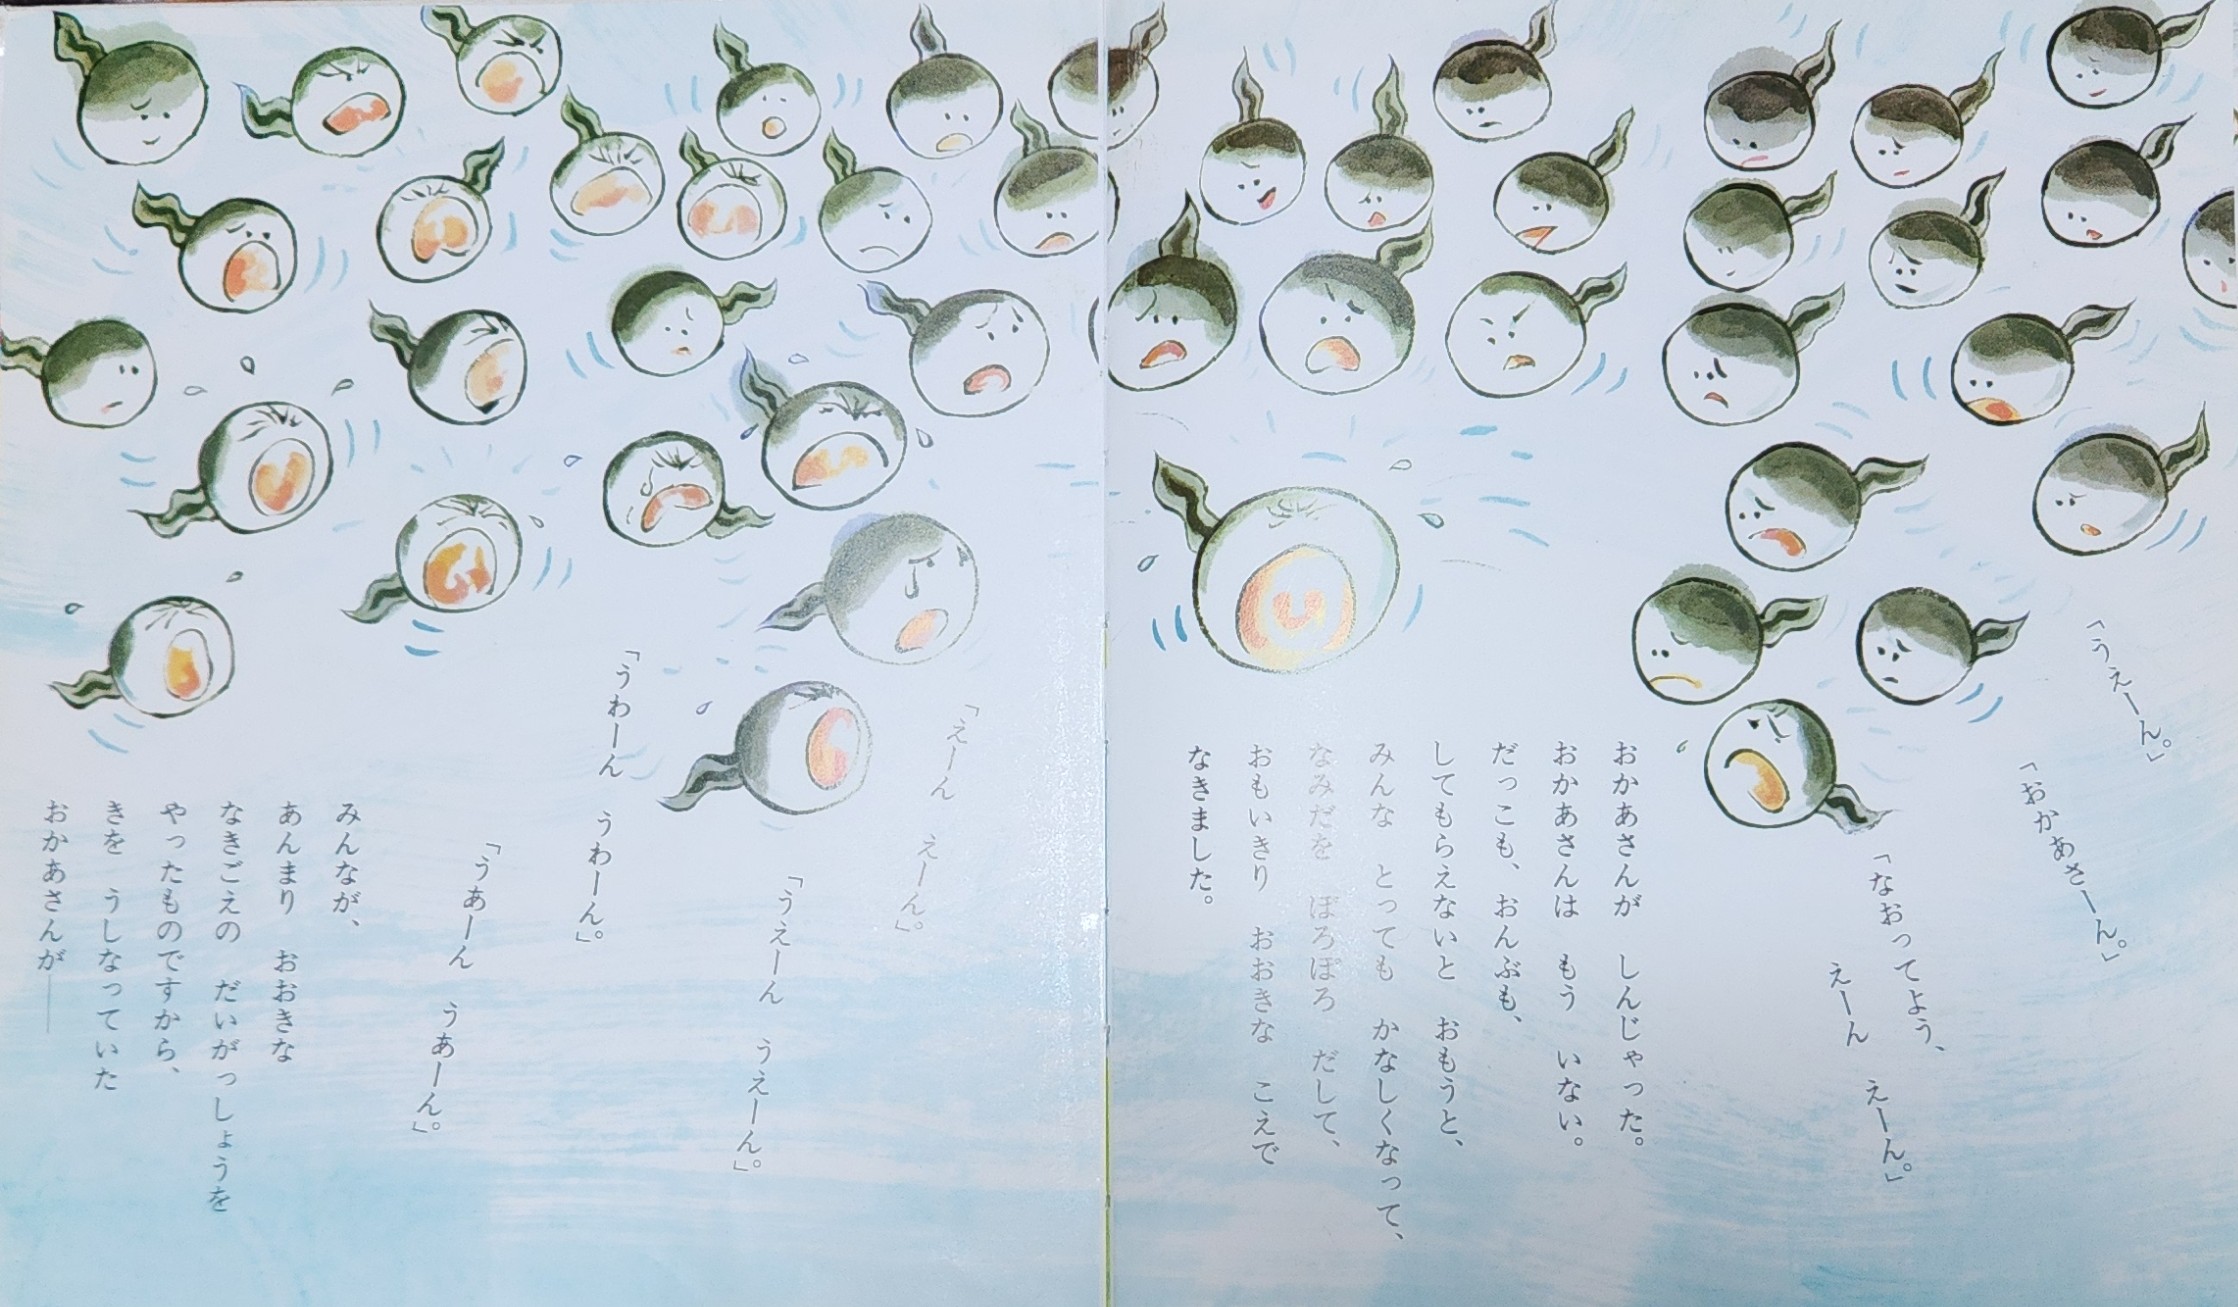 「うぇーん。」
「おかあさーん。」
「なおってよう、
えーん　えーん。」
おかあさんが　しんじゃった。
おかあさんは　もう　いない。
だっこも、おんぶも、
してもらえないと　おもうと、
みんな　とっても　かなしくなって、
なみだを　ぽろぽろ　だして、
おもいきり　おおきな　こえで
なきました。
「えーん　えーん。」
「うえーん　うえーん。」
「うわーん　うわーん。」
「うあーん　うあーん。」
みんなが、
あんまり　おおきな
なきごえの　だいがっしょうを
やったものですから、
きを　うしなっていた
おかあさんが――